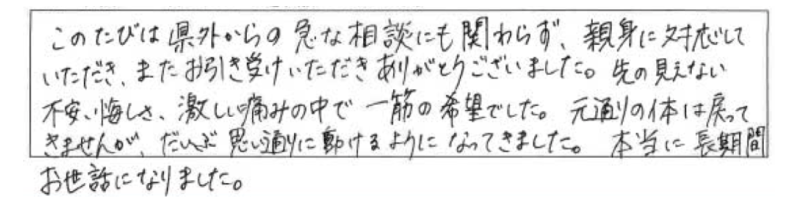 このたびは県外からの急な相談にも関わらず、親身に対応して
いただき、またお引き受けいただきありがとうございました。先の見えない
不安、悔しさ、激しい痛みの中で一筋の希望でした。元通りの体は戻って
きませんが、だいぶ思い通りに動けるようになってきました。本当に長期間
お世話になりました。